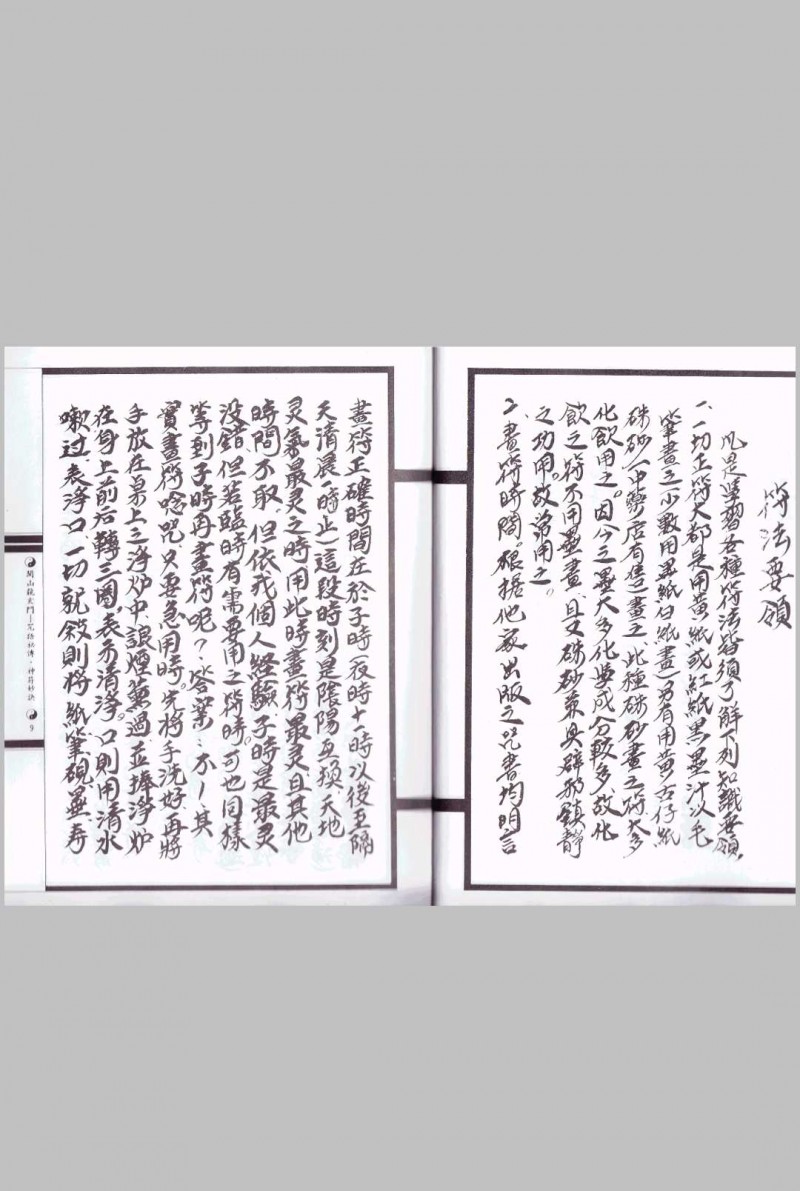 符法要領
凡是學習各種符法皆須了解下列知識要領,
一、一切正符大都是用黄紙或紅紙黑墨汁以毛
筆畫之(少數用黑紙白紙畫)另有用黄古仔紙
硃砂(中藥店有售)畫之,此種硃砂畫之符大多
化飲用之。因今之墨大多化學成分較多,故化
飲之符不用墨畫,且又硃砂兼具辟邪鎮靜
之功用。故常用之。
2、畫符時間。根據他家出版之咒書均明言
畫符正確時間在於子時(夜時十一時以後至隔
天清晨一時止)這段時刻是陰陽互換、天地
灵氣最灵之時,用此時畫符最灵且其他
時間不取,但依我個人経驗,子時是最灵
没錯,但若臨時有需要用之符時。可也同樣
等到子時再畫符呢?答案:不!其
實畫符唸咒只要急用時。先將手洗好,再將
手放在桌上之净炉中,讓煙薰過,並捧净炉
在身上前后轉三圈,表示清淨。口則用清水
嗽过,表淨口,一切就叙則將紙筆硯墨寿
開山龍玄門—咒語秘傳・神符妙訣
9